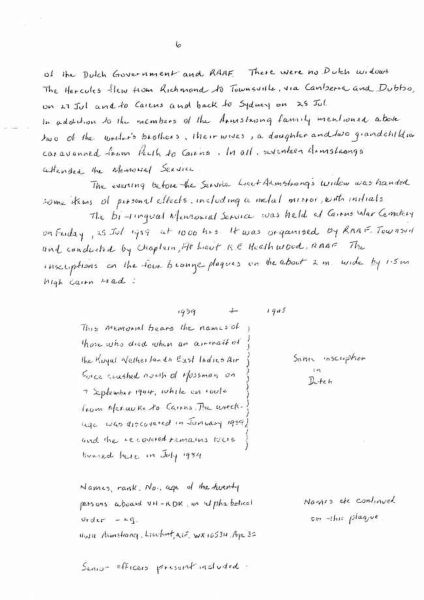 6
of the Dutch Government and RAAF. There were no Dutch widows
The Hercules flew from Richmond to Townsville, via Canberra and Dubbo,
on 27 Jul and to Cairns and back to Sydney on 28 Jul
In addition to the members of the Armstrong family mentioned above
two of the writer's brothers, their wives, a daughter and two grandchildren
caravanned from Perth to Cairns. In all, seventeen Armstrongs
attended the Memorial Service
The evening before the Service Lieut Armstrong's widow was handed
some items of personal effects, including a metal mirror, with initials
The bi-lingual Memorial Service was held at Cairns War Cemetery
on Friday, 28 Jul 1989 at 1000 hrs. It was organised by RAAF, Townsville
and conducted by Chaplain, Flt Lieut R.E. Heathwood, RAAF The
inscriptions on the four bronze plaques on the about 2 m wide by 1.5 m
high cairn read:
1939 + 1945
This Memorial bears the names of
those who died when an aircraft of
the Royal Netherlands East Indies Air
Force crashed north of Mossman on
7 September 1944, while en route
from Merauke to Cairns. The wreck-
age was discovered in January 1989,
and the recovered remains were
buried here in July 1989
Same inscription
in
Dutch
Names, rank, No., age of the twenty
persons aboard VH-RDK, in alphabetical
order - eg.
Armstrong, Lieutenant, AIF, Age 32
Names etc continued
on this plaque
Senior officers present included.